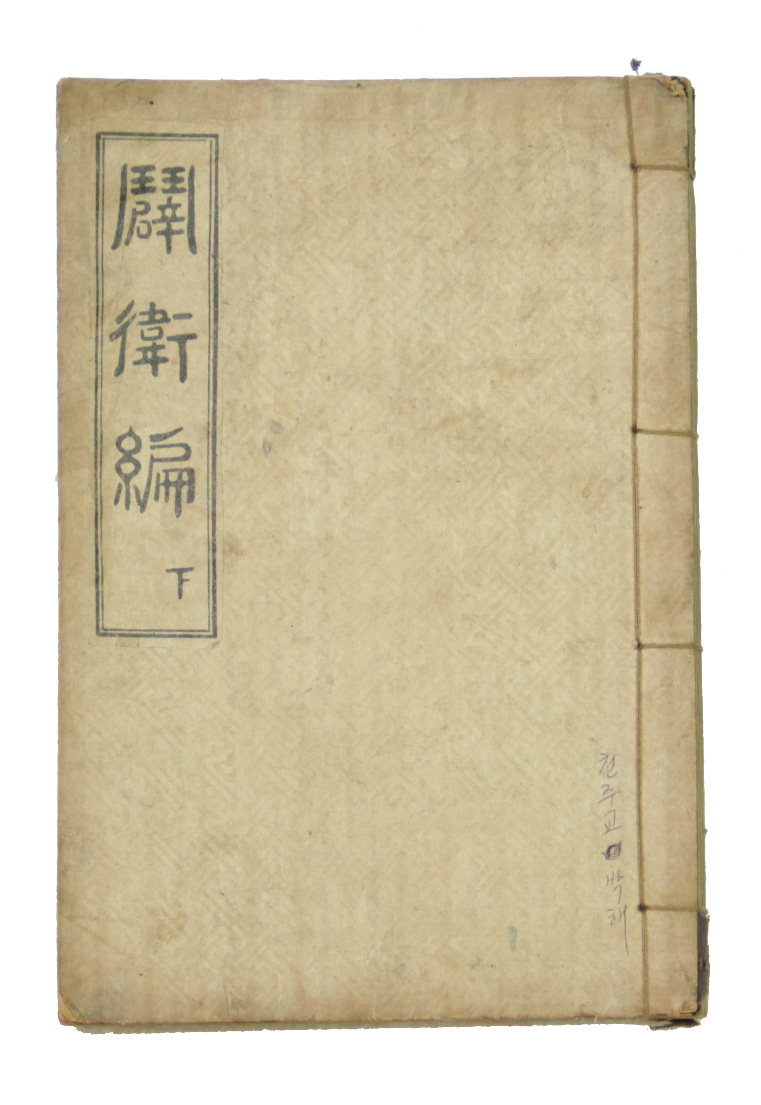 闢衛編 下
천주교 박해